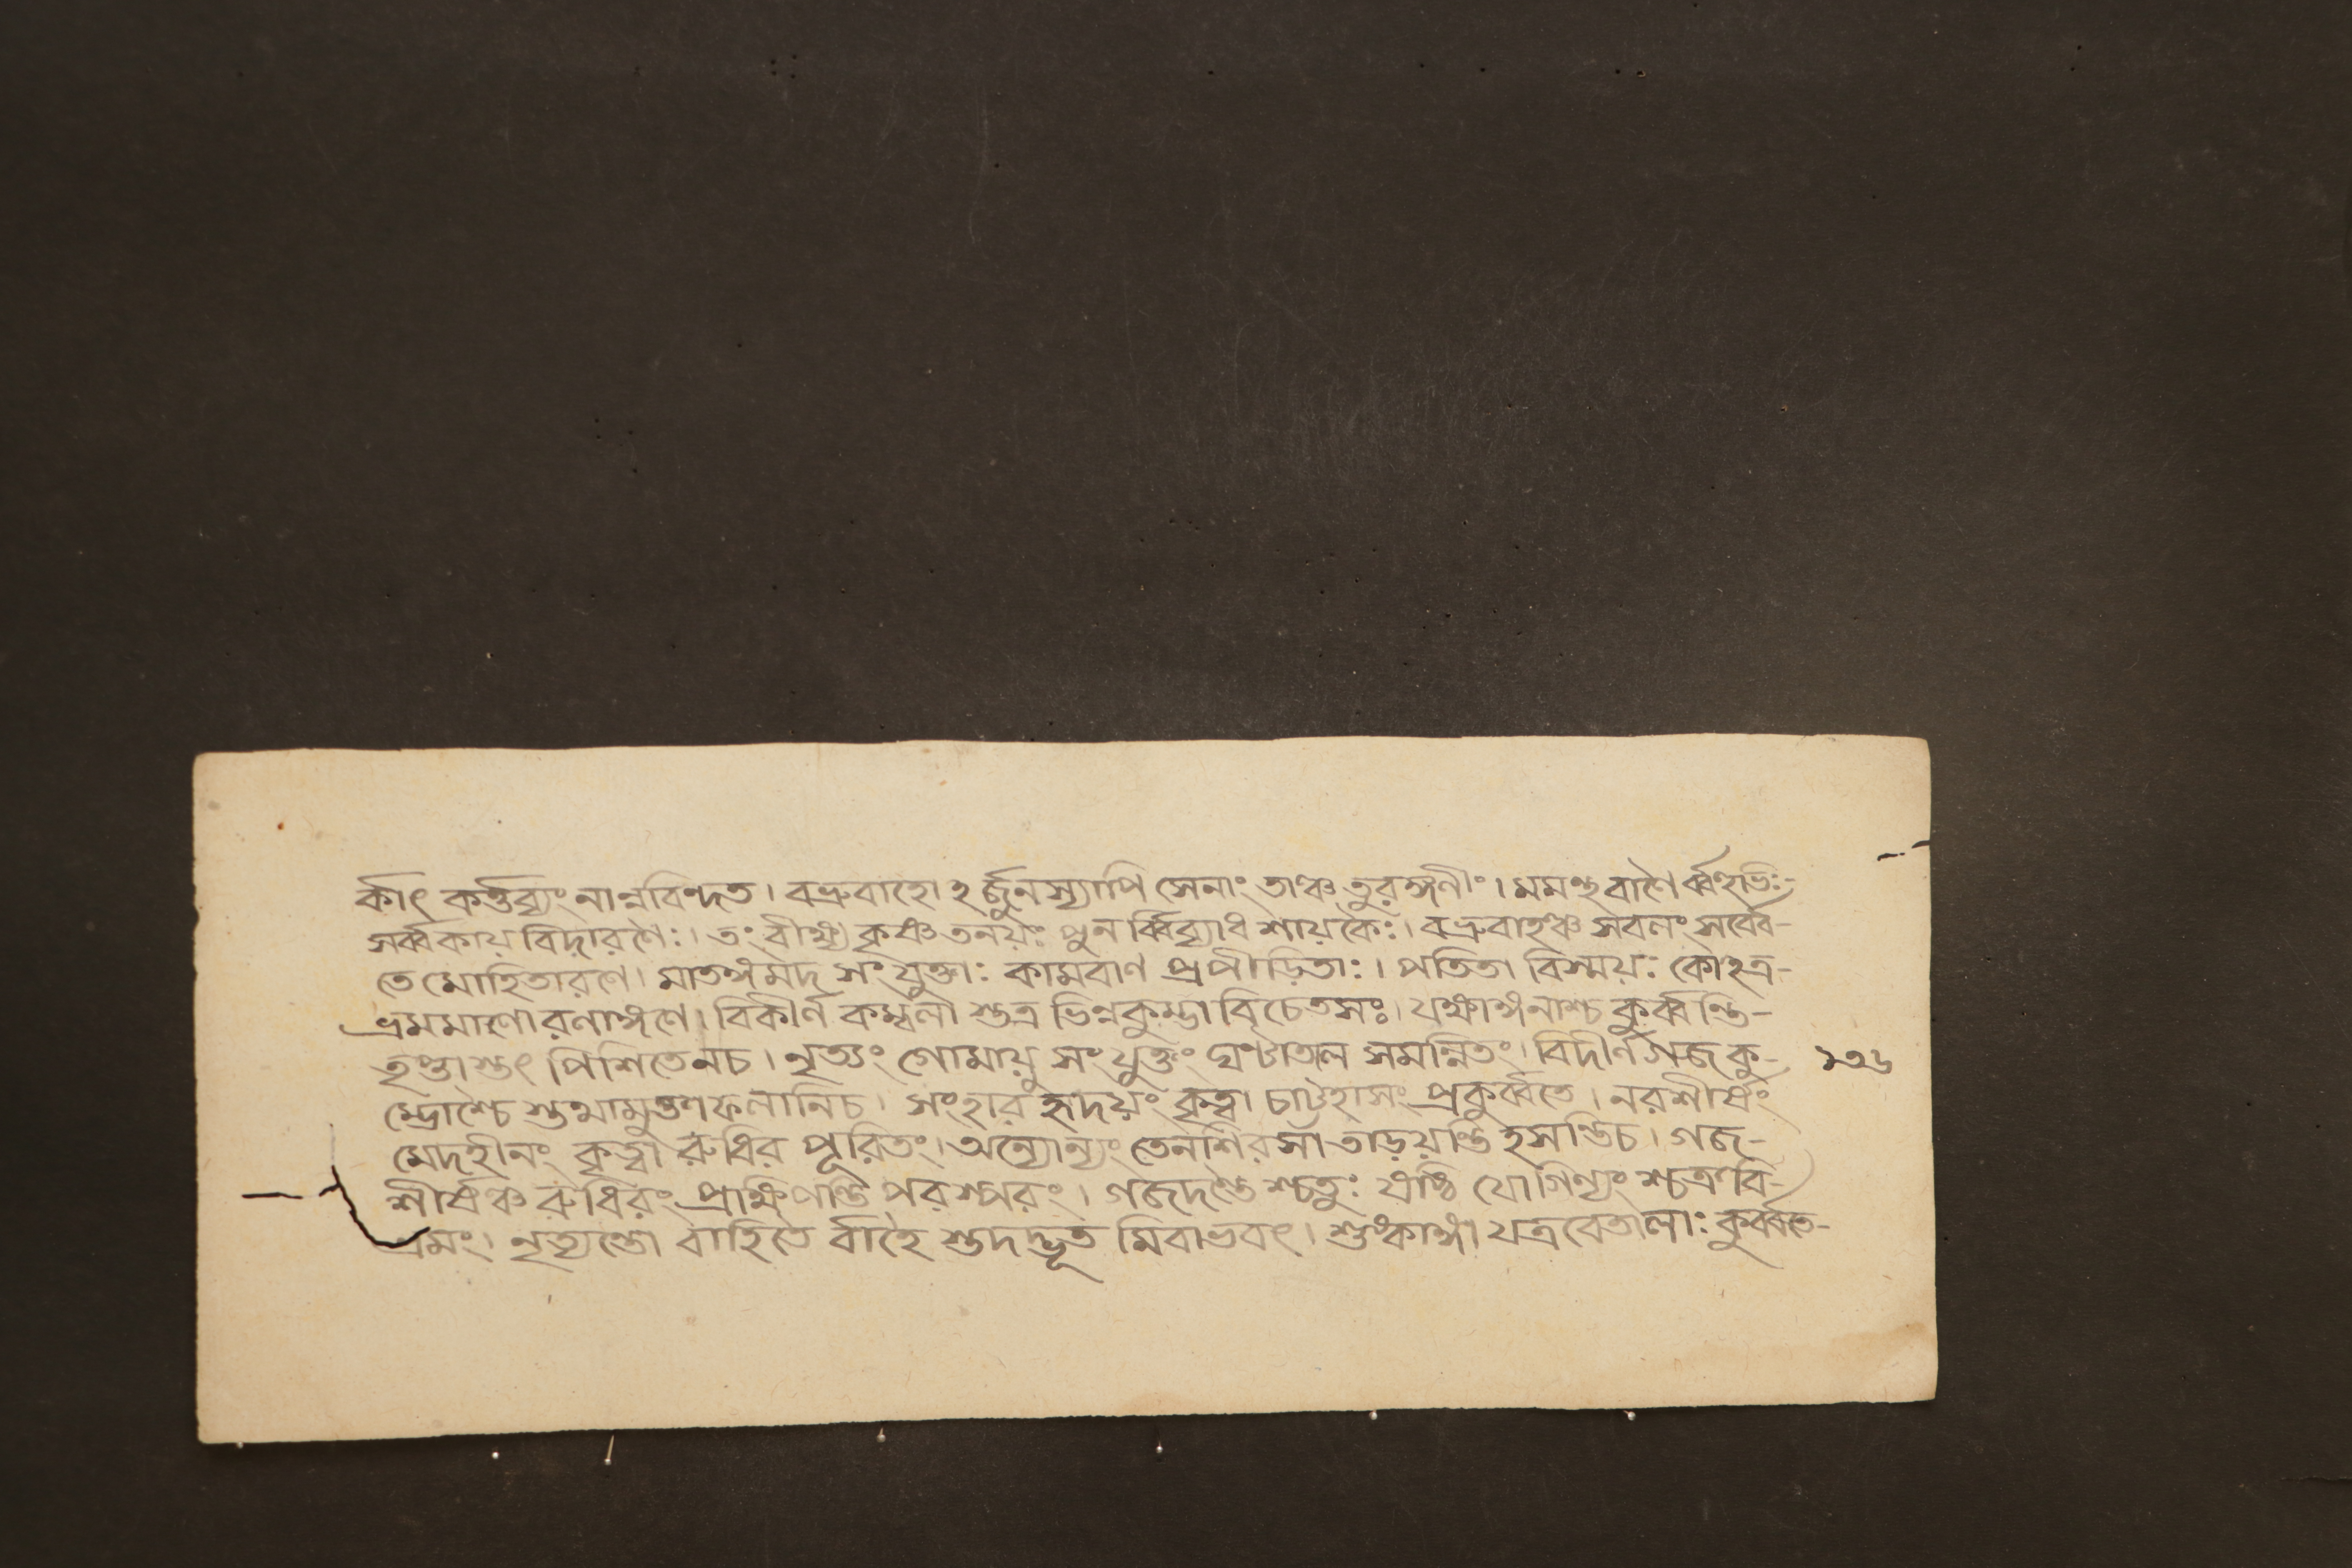 র্কাৎ কর্ত্তব্যং নান্নবিন্দত। বভ্রুবাহো ঽর্জ্জুনস্যাপি সেনাং তাঞ্চতুরঙ্গণীং। মমন্থ বাণৈ র্ব্বহুভিঃ-
সর্ব্বকায় বিদারণৈঃ। তং বীক্ষ্য কৃষ্ণতনয়ঃ পুন র্ব্বিব্যাধ শায়কৈঃ। বভ্রুবাহঞ্চ সবলং সর্ব্বে-
তে মোহিতারণে। মাতঙ্গমদ সংযুক্তাঃ কামবাণ প্রপীড়িতাঃ। পতিতা বিস্ময়ঃ কোঽত্র-
ভ্রমমাণো রণাঙ্গণে। বিকীর্ণ কম্বলা স্তত্র ভিন্নকুম্ভা বিচেতসঃ। যক্ষাঙ্গনাশ্চ কুর্ব্বন্তি-
তৃপ্তাস্তৎ পিশিতেনচ। নৃত্যং গোমায়ু সংযুক্তং ঘংটাতাল সমন্নিতং। বিদীর্ণ গজকু- ১৩৬
ম্ভোশ্চৈ স্তথামুক্তাফলানিচ। সংহার হৃদয়ং কৃত্বা চাট্টহাসং প্রকুর্ব্বতে। নরশীর্ষং
মেদহীনং কৃত্বা রুধির পূরিতং। অন্যোন্যং তেনশিরসা তাড়য়ন্তি হসন্তিচ। গজ-
শীর্ষঞ্চ রুধিরং প্রাক্ষিপন্তি পরস্পরং। গজদন্তৈ শ্চতুঃ ষষ্ঠি যোগিন্যং শ্চত্রবি-
ভ্রমং। নৃত্যন্তো বাহিতৈ র্বাহৈ স্তদদ্ভূত মিবাভবৎ। শুষ্কাঙ্গা যত্র বেতালাঃ কুর্ব্বতে-